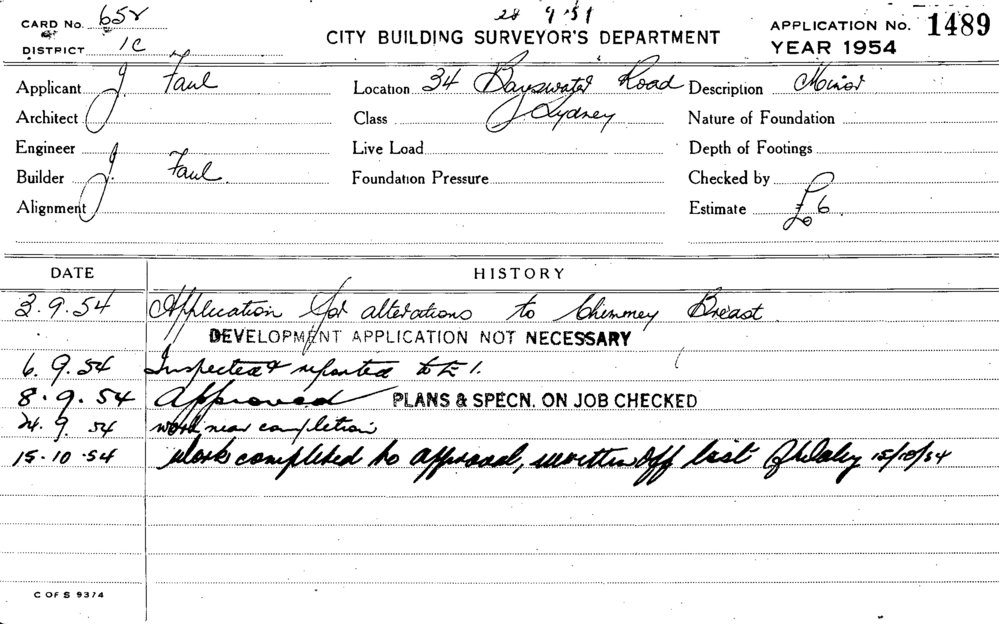 CARD No. 658
28 9 51
APPLICATION No. 1489
DISTRICT 1C
CITY BUILDING SURVEYOR'S DEPARTMENT
YEAR 1954
Applicant J. Faul
Location 34 Bayswater Road
Description Minor
Architect
Class Sydney
Nature of Foundation
Engineer
Live Load
Depth of Footings
Builder J. Faul.
Foundation Pressure
Checked by
Alignment
Estimate £6
DATE HISTORY
3.9.54 Application for alterations to Chimney Breast
DEVELOPMENT APPLICATION NOT NECESSARY
6.9.54 Inspected & reported to
8.9.54 Approved PLANS & SPECN. ON JOB CHECKED
24.9.54 work near completion
15.10.54 Work completed to approval, written off list 15/10/54
C OF S 9374